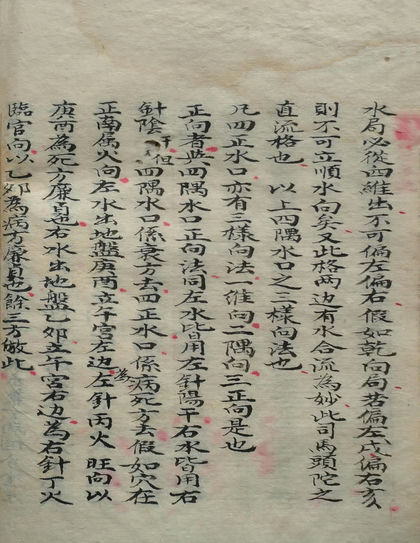 水局必從四維出不可偏左偏右假如乾向局若偏左戌偏右亥
則不可立順水向矣又此格两边有水合流為妙此司馬頭陀之
直流格也 以上四隅水口之三樣向法也
凡四正水口亦有三樣向法一維向二隅向三正向是也
正向者四隅水口正向法同左水皆用左針陽干右水皆用右
針陰干但四隅水口係衰方去四正水口係病死方去假如穴在
正南属火向左水出地盤庚酉立午宮左边為左針丙火 旺向以
庚酉為死方廉貞右水出地盤乙卯立午宮右边為右針丁火
臨官向以乙卯為病方廉貞也餘三方倣此